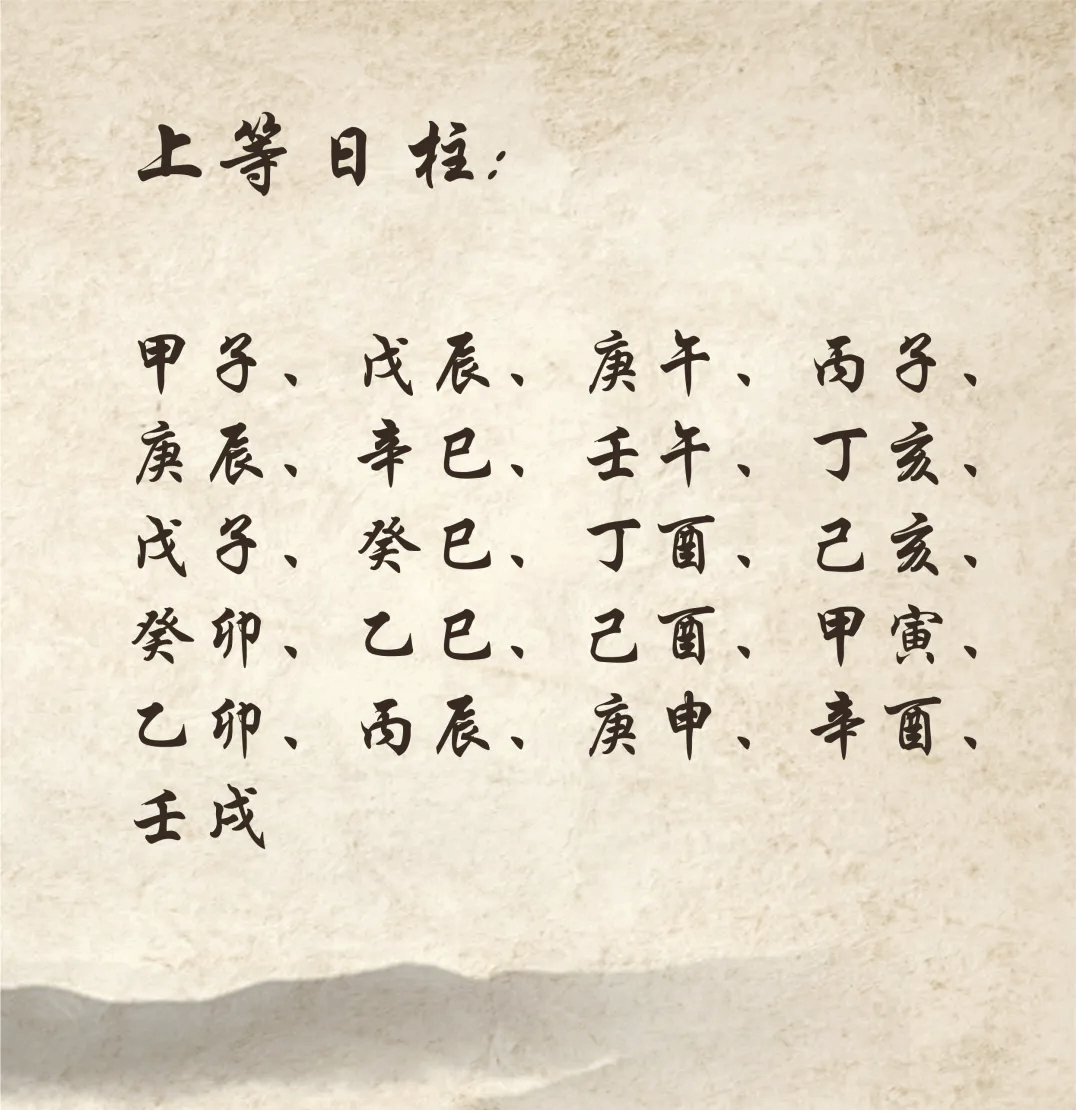 上等日柱：
甲子、戊辰、庚午、丙子、
庚辰、辛巳、壬午、丁亥、
戊子、癸巳、丁酉、己亥、
癸卯、乙巳、己酉、甲寅、
乙卯、丙辰、庚申、辛酉、
壬戌